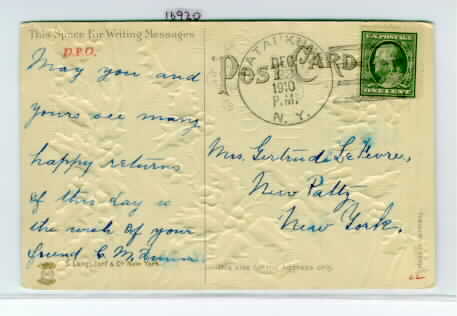 16920
This Space For Writing Messages
D.P.O.
May you and
yours see many
happy returns
of this day is
the wish of your
friend C. M.
S. Langsdorf & Co New York
POST CARD
DEC
1910
P.M.
N. Y.
U.S. POSTAGE
ONE CENT
Mrs. Gertrude LeFevre,
New Paltz
New York.
This side for the Address only.